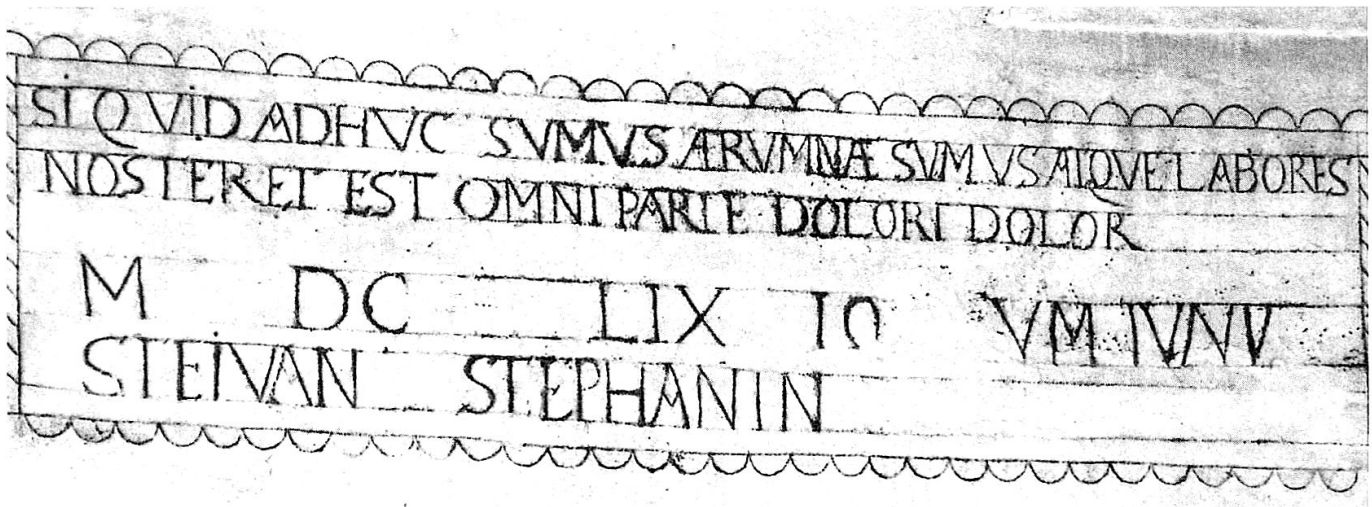 SI QVID ADHVC SVMVS ÆRVMNÆ SVMVS ATQVE LABORES
NOSTER ET EST OMNI PARTE DOLORI DOLOR
M DC LIX VM IVNV
STEIVAN STEPHANIN